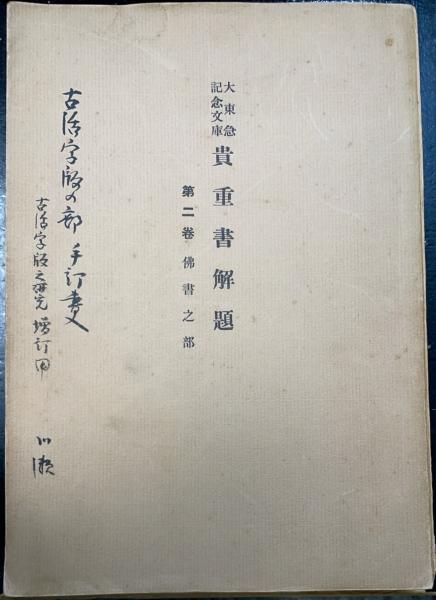 大東急
記念文庫
貴重書解題
第二卷 佛書之部
古活字版の部 手訂書入
古活字版之研究 増訂用
川瀬